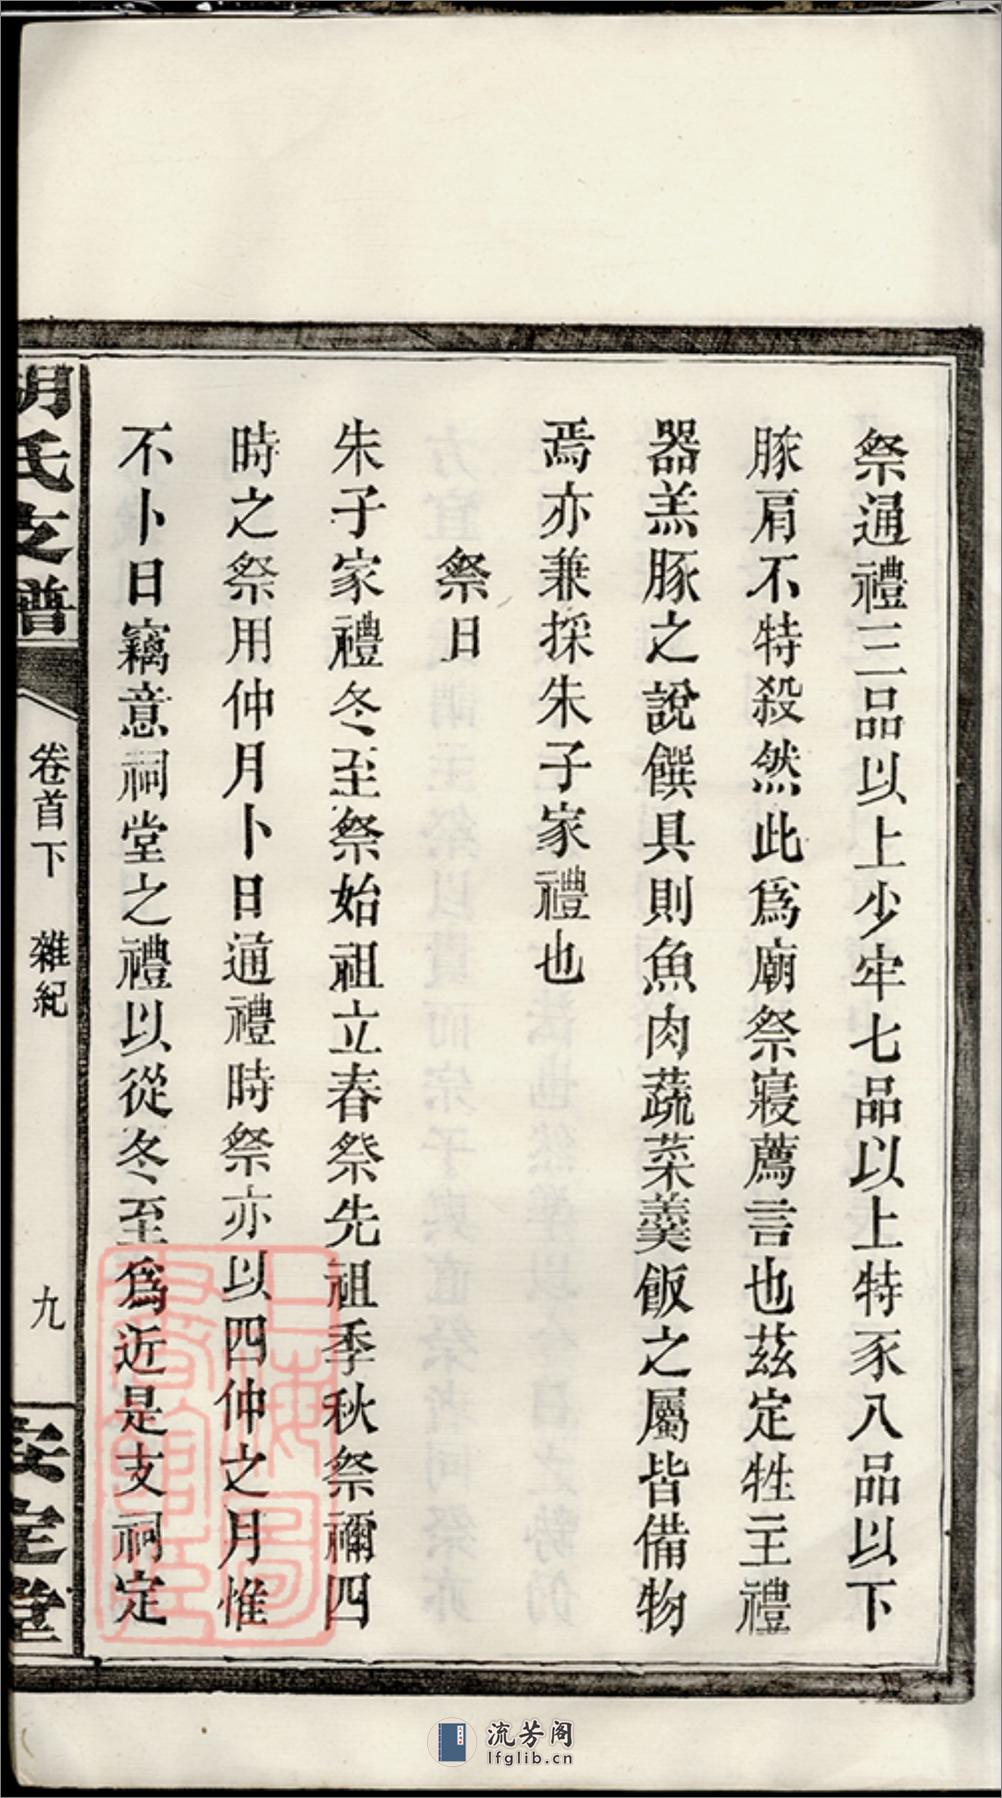 祭通禮三品以上少牢七品以上特豕八品以下
豚肩不特殺然此爲廟祭寢薦言也茲定牲主禮
器羔豚之說饌具則魚肉蔬菜羹飯之屬皆備物
焉亦兼採朱子家禮也
祭日
朱子家禮冬至祭始祖立春祭先祖季秋祭禰四
時之祭用仲月卜日通禮時祭亦以四仲之月惟
不卜日竊意祠堂之禮以從冬至爲近是支祠定
胡氏支譜
卷首下 雜紀
九
安定堂
上海圖書館藏
流芳阁
lfglib.cn